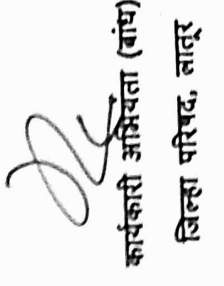 कार्यकारी अभियंता (बांध)
जिल्हा परिषद, लातूर